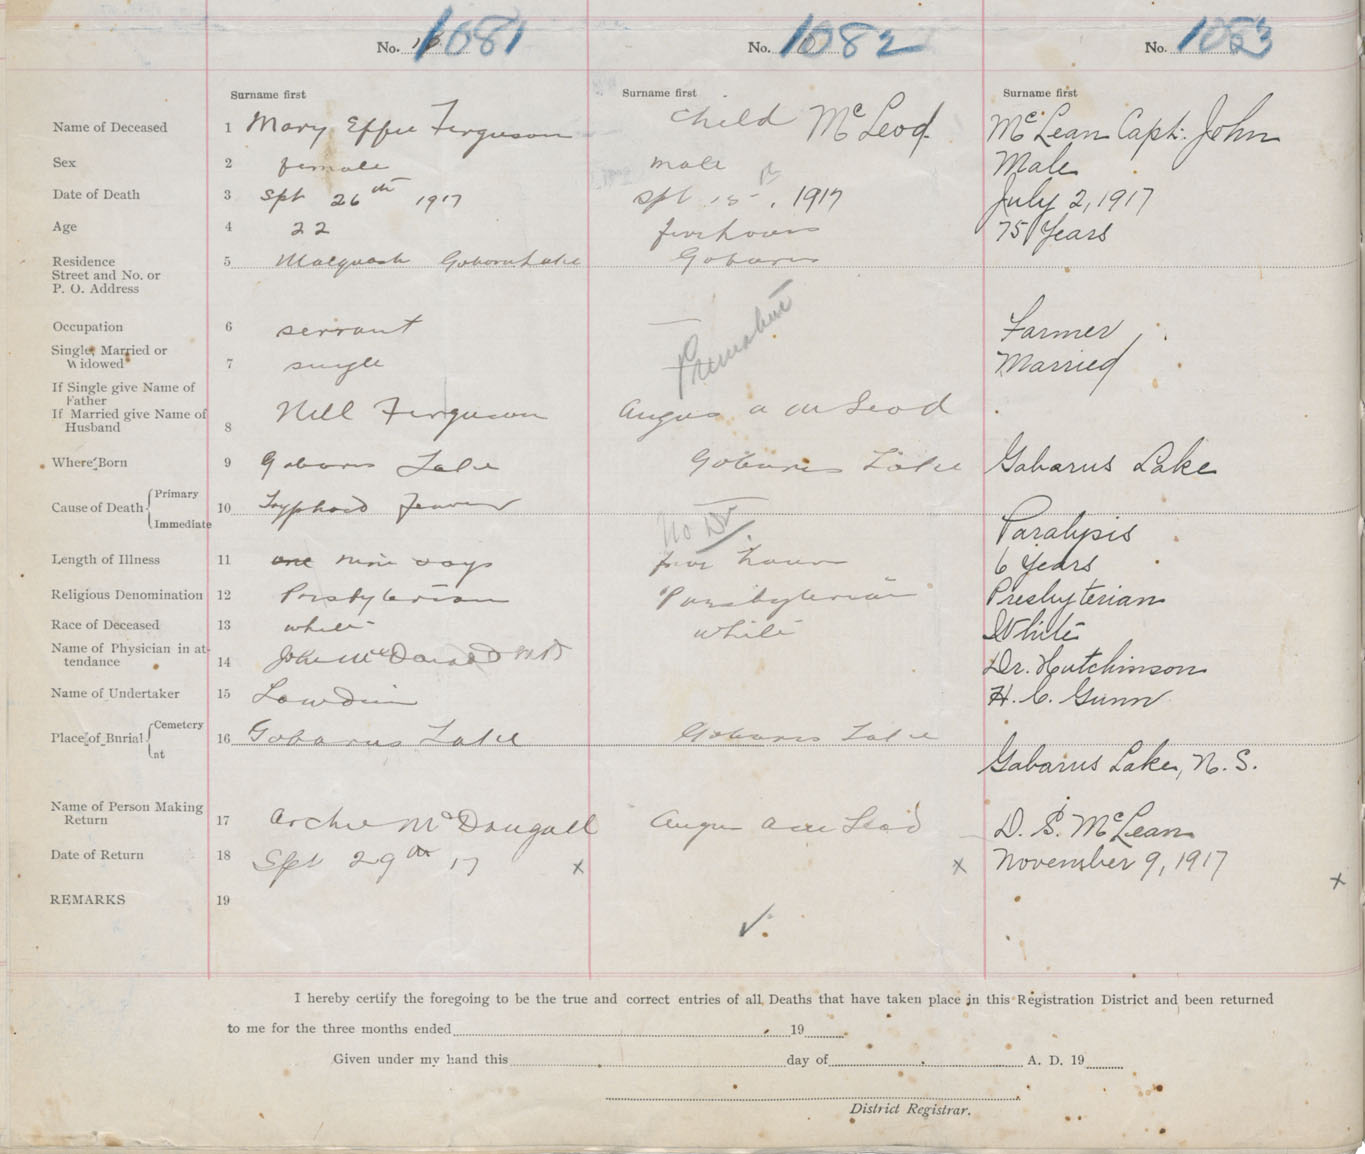 No. 16 1081 No. 1082 No. 1083
Surname first Surname first Surname first
Name of Deceased 1 Mary Effie Ferguson child McLeod McLean Capt. John
Sex 2 female male Male
Date of Death 3 Spt 26th 1917 Spt 15th, 1917 July 2, 1917
Age 4 22 five hours 75 Years
Residence 5 Gabarus Lake Gabarus
Street and No. or
P. O. Address
Occupation 6 servant — Farmer
Premature
Single, Married or
Widowed 7 single Married
If Single give Name of
Father
If Married give Name of
Husband 8 Niell Ferguson Angus a McLeod
Where Born 9 Gabarus Lake Gabarus Lake Gabarus Lake
Cause of Death Primary
10 Typhoid Fever No Dr
Immediate Paralysis
Length of Illness 11 one nine days five hours 6 Years
Religious Denomination 12 Presbyterian Presbyterian Presbyterian
Race of Deceased 13 white white White
Name of Physician in at-
tendance 14 McDonald MD Dr. Hutchinson
Name of Undertaker 15 H. C. Gunn
Place of Burial Cemetery
16 Gabarus Lake Gabarus Lake
at Gabarus Lake, N. S.
Name of Person Making
Return 17 Archie McDougall Angus McLeod D. S. McLean
Date of Return 18 Spt 29th 17 x x November 9, 1917 x
REMARKS 19
✓
I hereby certify the foregoing to be the true and correct entries of all Deaths that have taken place in this Registration District and been returned
to me for the three months ended 19
Given under my hand this day of A. D. 19
District Registrar.